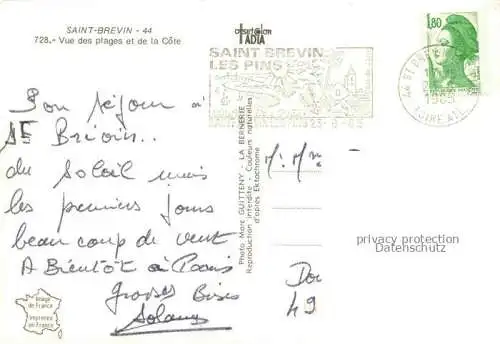 SAINT-BREVIN - 44
728.- Vue des plages et de la Côte
ADIA
SAINT BREVIN
LES PINS
1,80
LOIRE ATL
Bon séjour à
St Brévin..
du soleil mais
les premiers jours
beaucoup de vent
A Bientôt à Paris
Grosses Bises
Solange
Photo Marc GUITTENY - LA BERNERIE
Reproduction interdite - Couleurs naturelles
d'après Ektachrome
M. Mme
Dou
49
privacy protection
Datenschutz
Image
de France
Imprimée
en France